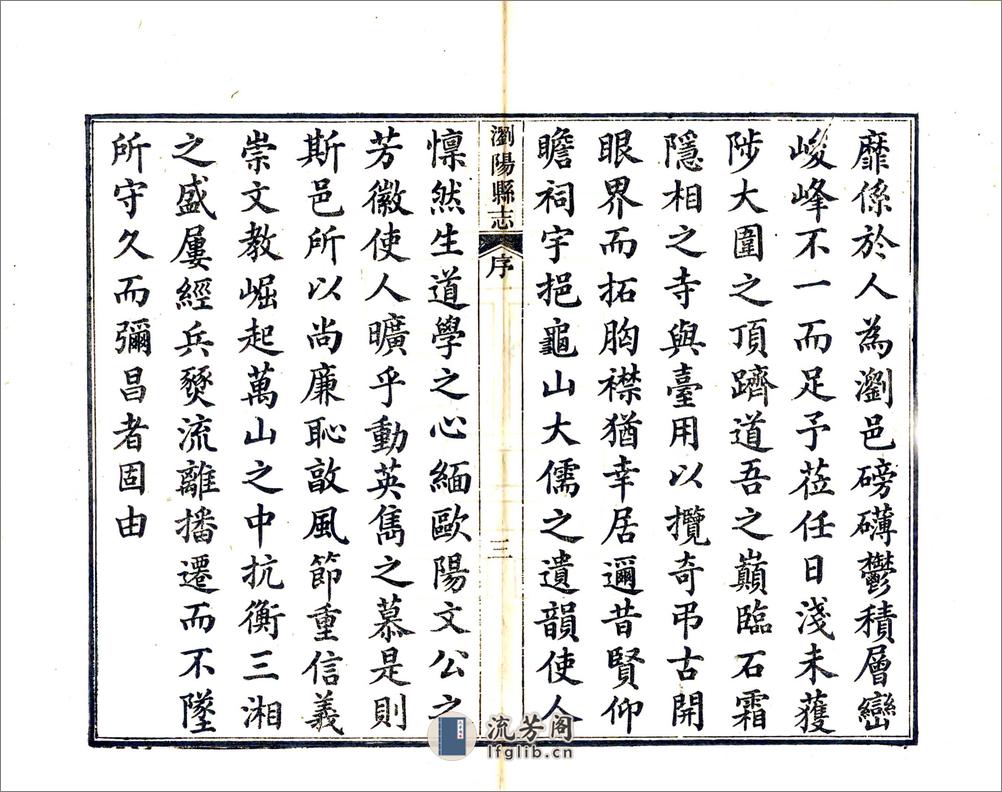 靡係於人為瀏邑磅礴鬱積層巒
峻峰不一而足予莅任日淺未獲
陟大圍之頂躋道吾之巔臨石霜
隱相之寺與臺用以攬奇弔古開
眼界而拓胸襟猶幸居邇昔賢仰
瞻祠宇挹龜山大儒之遺韻使人
瀏陽縣志 序 三
懍然生道學之心緬歐陽文公之
芳徽使人曠乎動英雋之慕是則
斯邑所以尚廉恥敦風節重信義
崇文教崛起萬山之中抗衡三湘
之盛屢經兵燹流離播遷而不墜
所守久而彌昌者固由
流芳阁
lfglib.cn